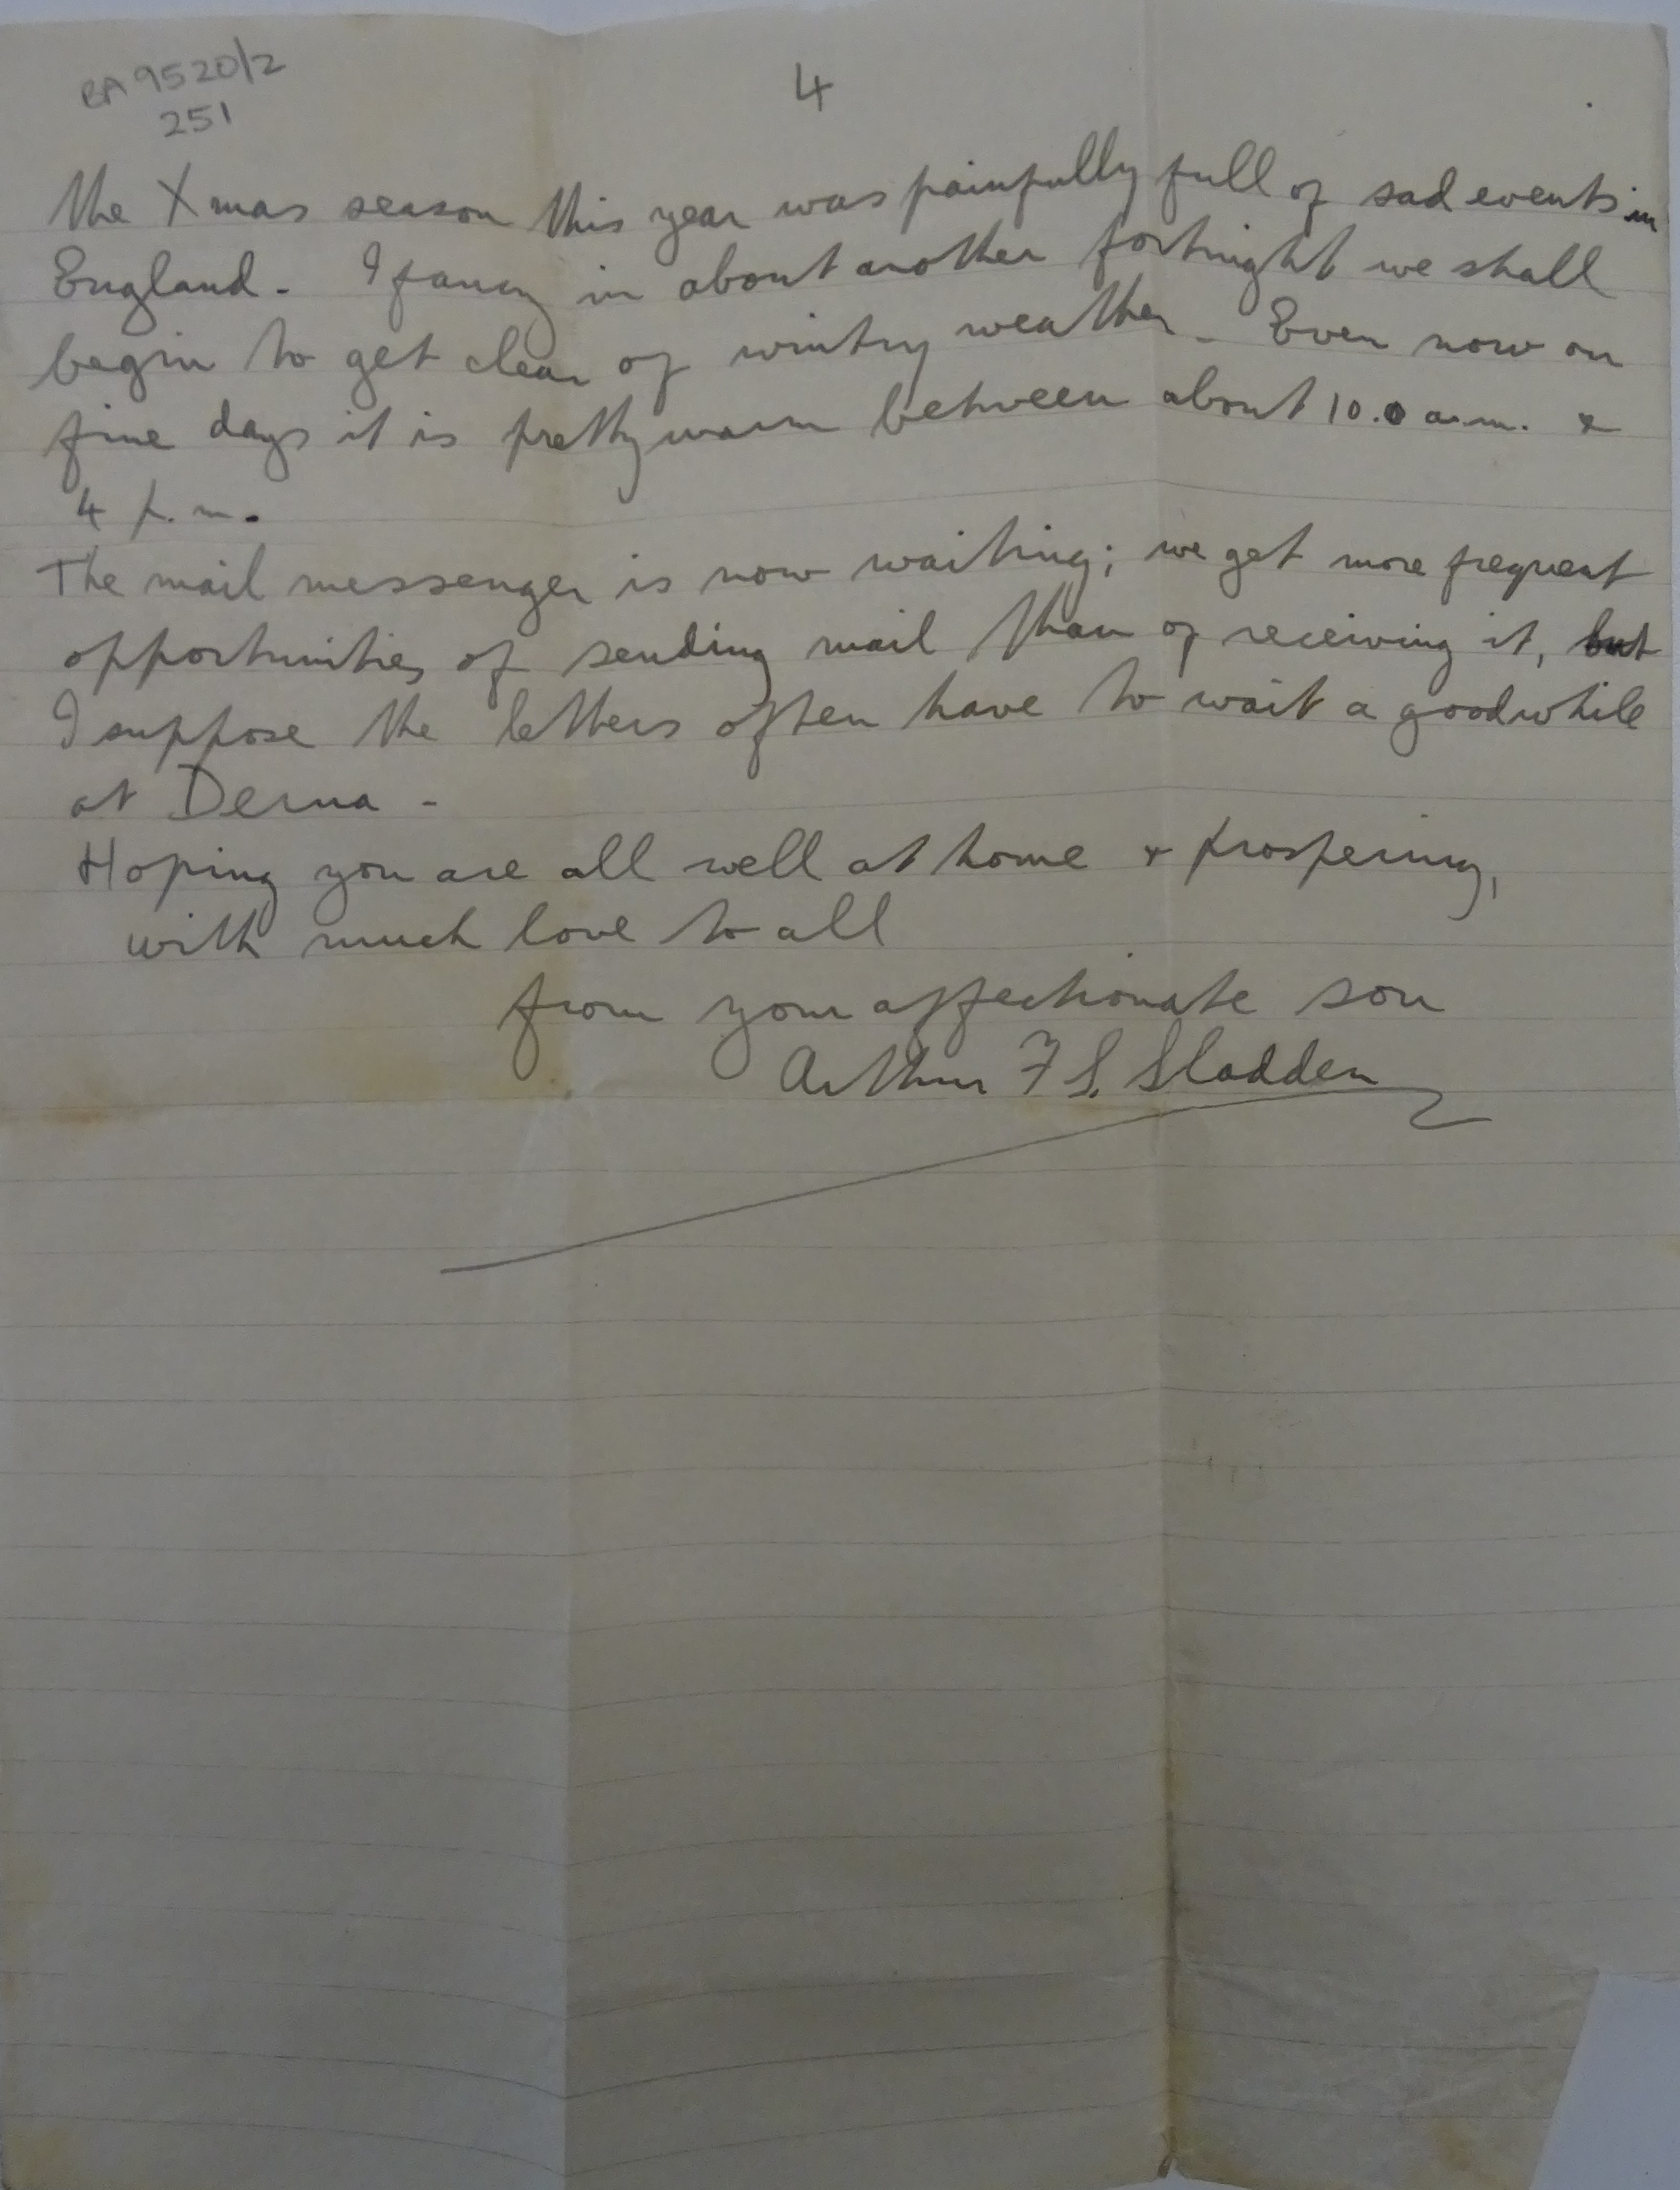 BA 9520/2
251
4
the Xmas season this year was painfully full of sad events in
England - I fancy in about another fortnight we shall
begin to get clear of wintry weather - Even now on
fine days it is pretty warm between about 10.0 a.m. &
4 p.m.
The mail messenger is now waiting; we get more frequent
opportunities of sending mail than of receiving it, but
I suppose the letters often have to wait a good while
at Derna -
Hoping you are all well at home & prospering,
with much love to all
from your affectionate son
Arthur F S. Sladden